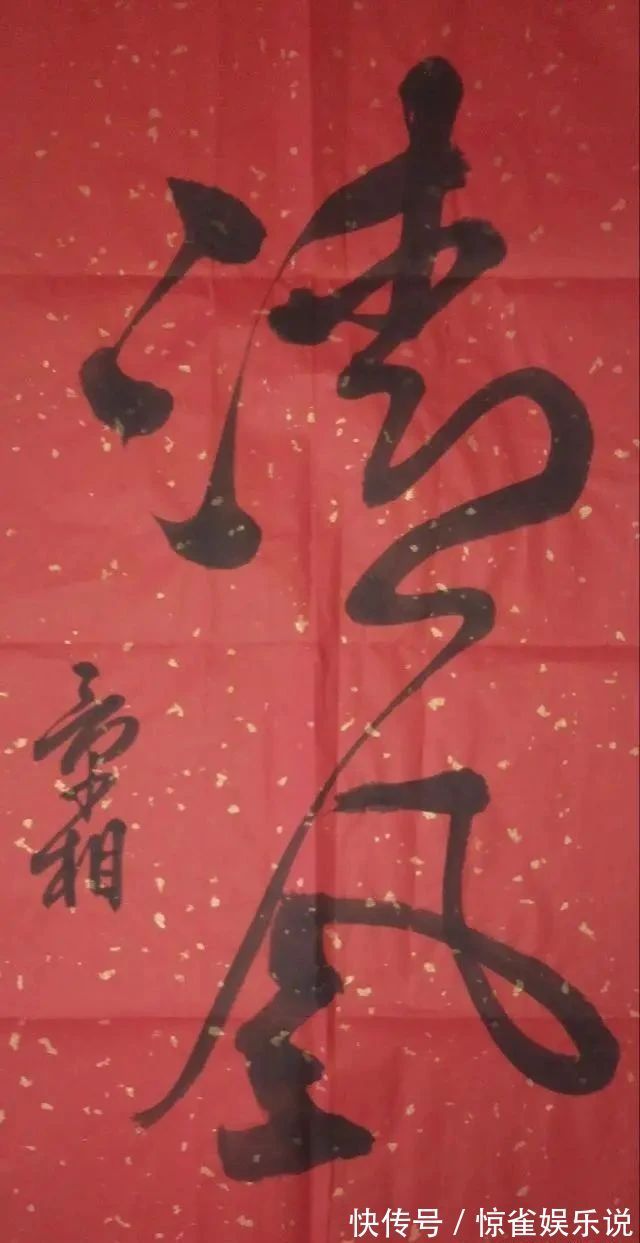 清风
快传号 / 惊雀娱乐说